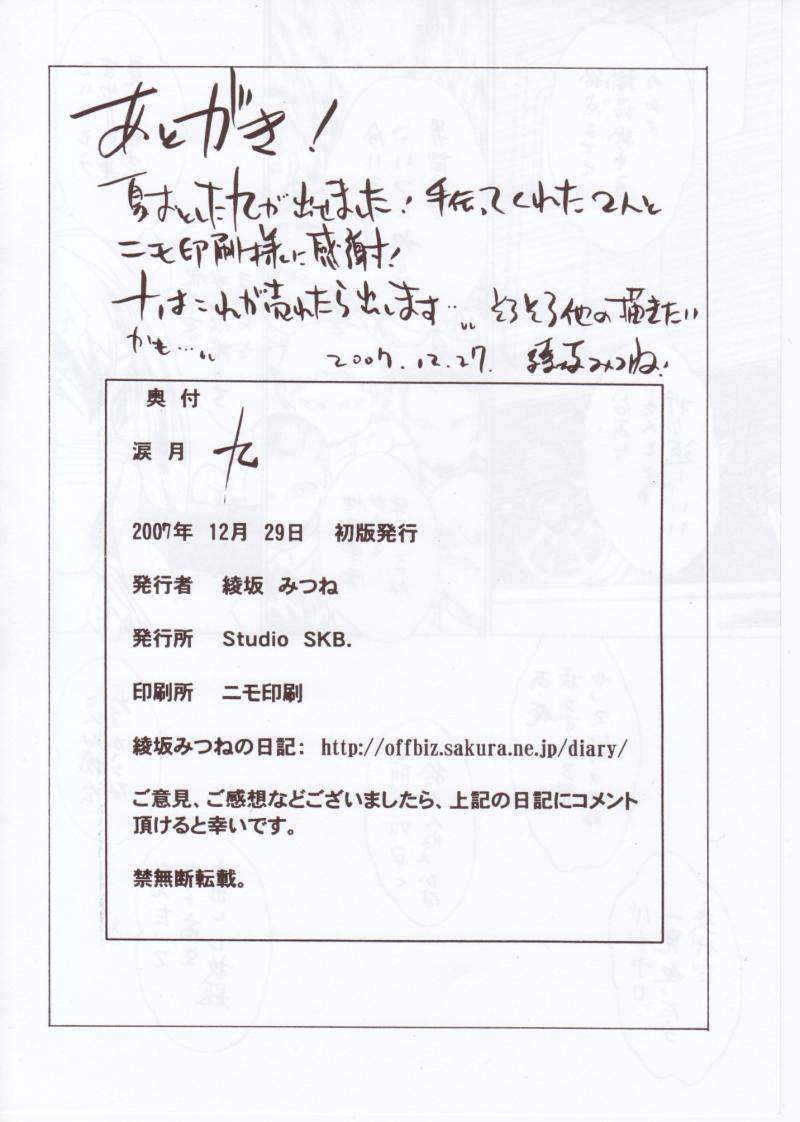 あとがき!
夏おとした九が出せました! 手伝ってくれた2人と
ニモ印刷様に感謝!
十はこれが売れたら出します… そろそろ他の描きたい
かも……  2007.12.27. 綾坂みつね!
奥付
涙月 九
2007年 12月 29日 初版発行
発行者 綾坂 みつね
発行所 Studio SKB.
印刷所 ニモ印刷
綾坂みつねの日記: http://offbiz.sakura.ne.jp/diary/
ご意見、ご感想などございましたら、上記の日記にコメント
頂けると幸いです。
禁無断転載。